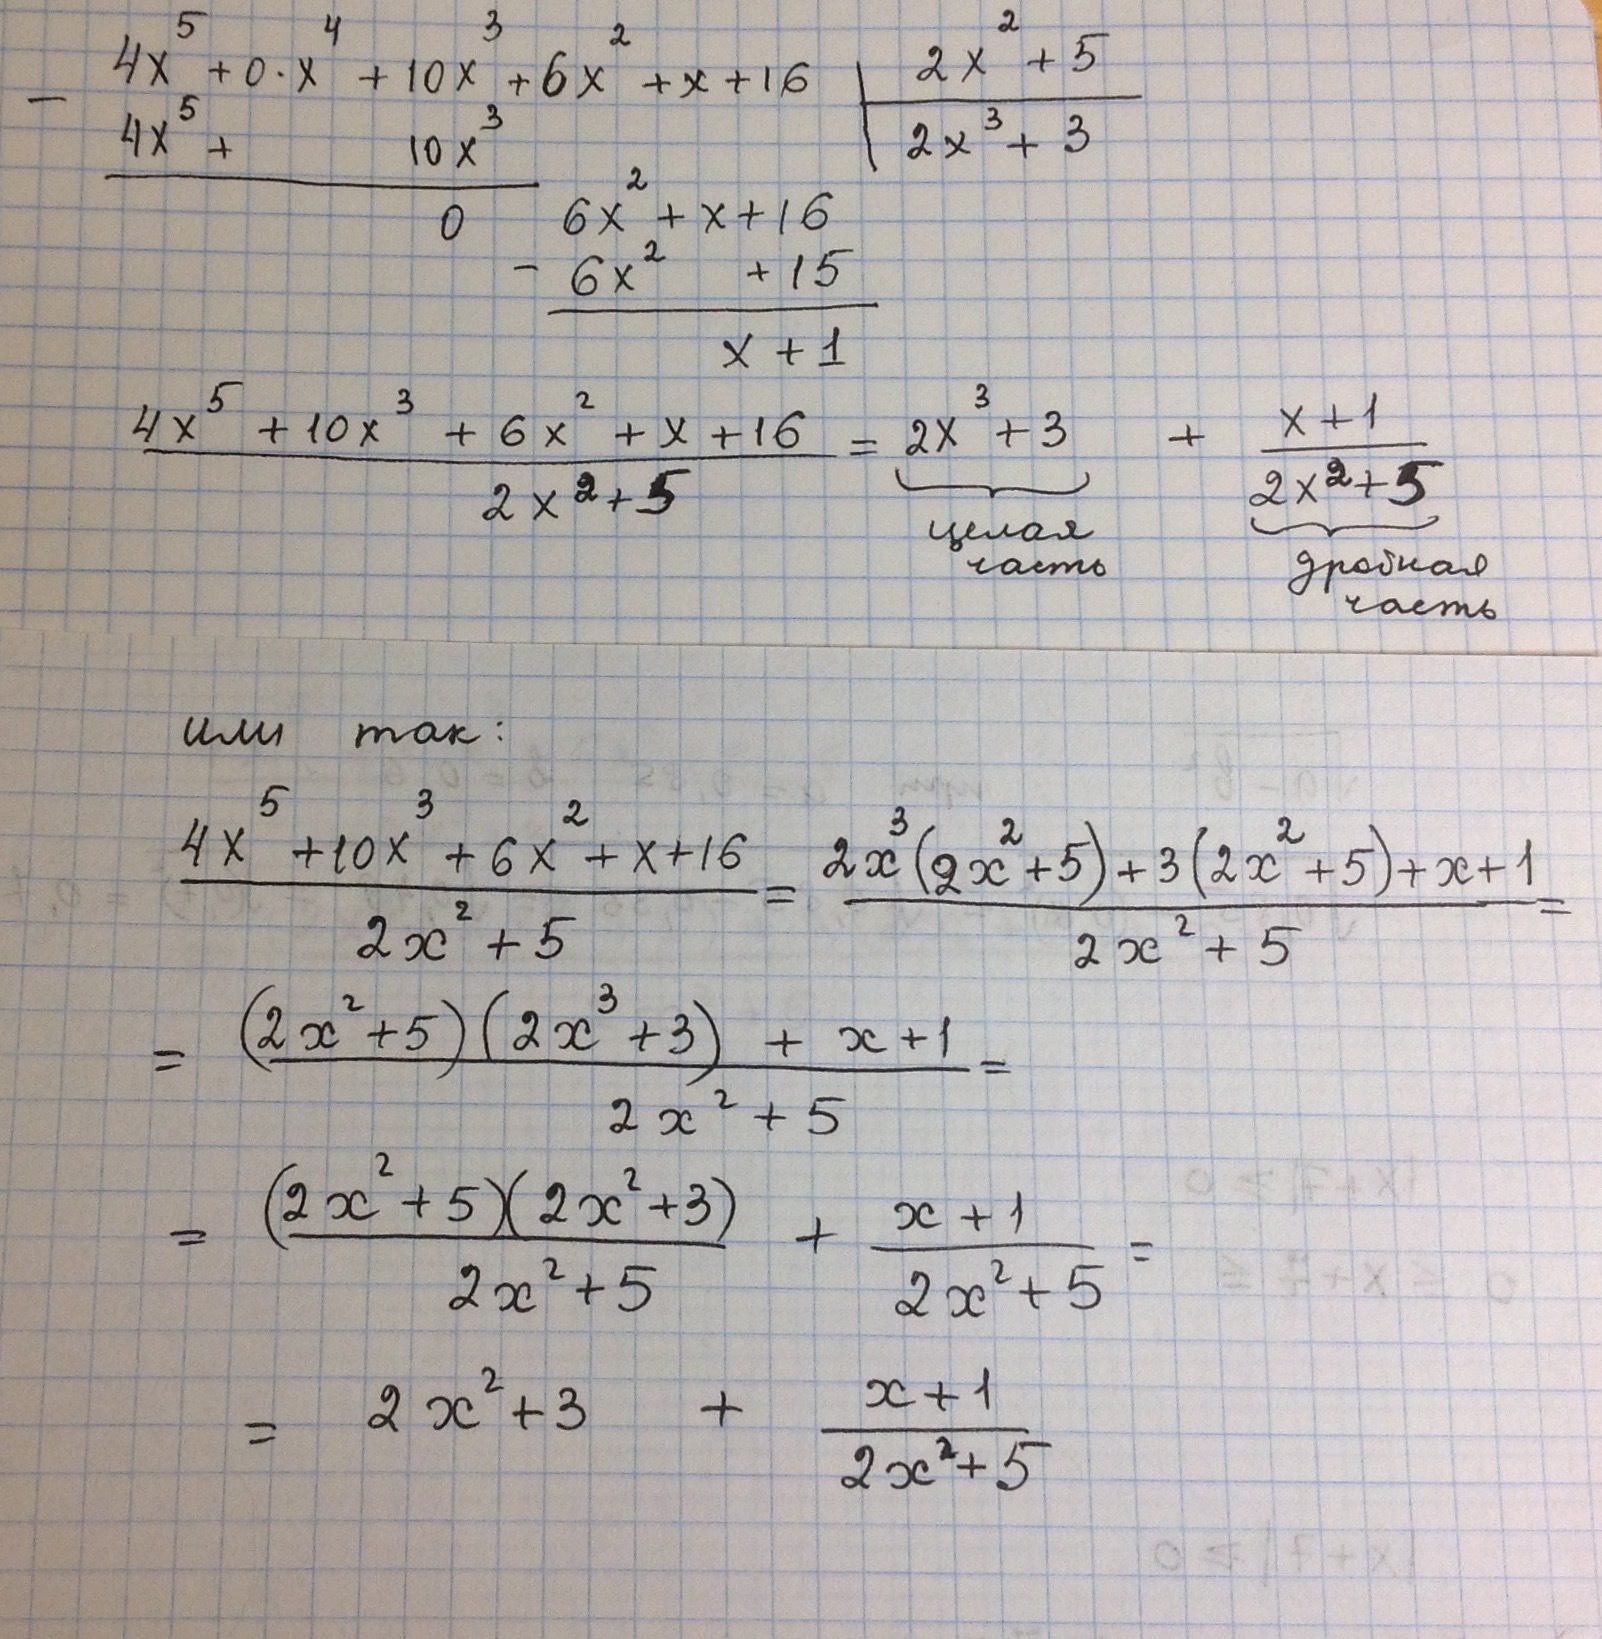 4x⁵ + 0·x⁴ + 10x³ + 6x² + x + 16 | 2x² + 5
− 4x⁵ + 10x³ | 2x³ + 3
0 6x² + x + 16
− 6x² + 15
x + 1
4x⁵ + 10x³ + 6x² + x + 16 = 2x³ + 3 + x + 1
2x² + 5 2x² + 5
целая часть дробная часть
или так:
4x⁵ + 10x³ + 6x² + x + 16 = 2x³(2x² + 5) + 3(2x² + 5) + x + 1 =
2x² + 5 2x² + 5
= (2x² + 5)(2x³ + 3) + x + 1 =
2x² + 5
= (2x² + 5)(2x² + 3) + x + 1 =
2x² + 5 2x² + 5
= 2x² + 3 + x + 1
2x² + 5